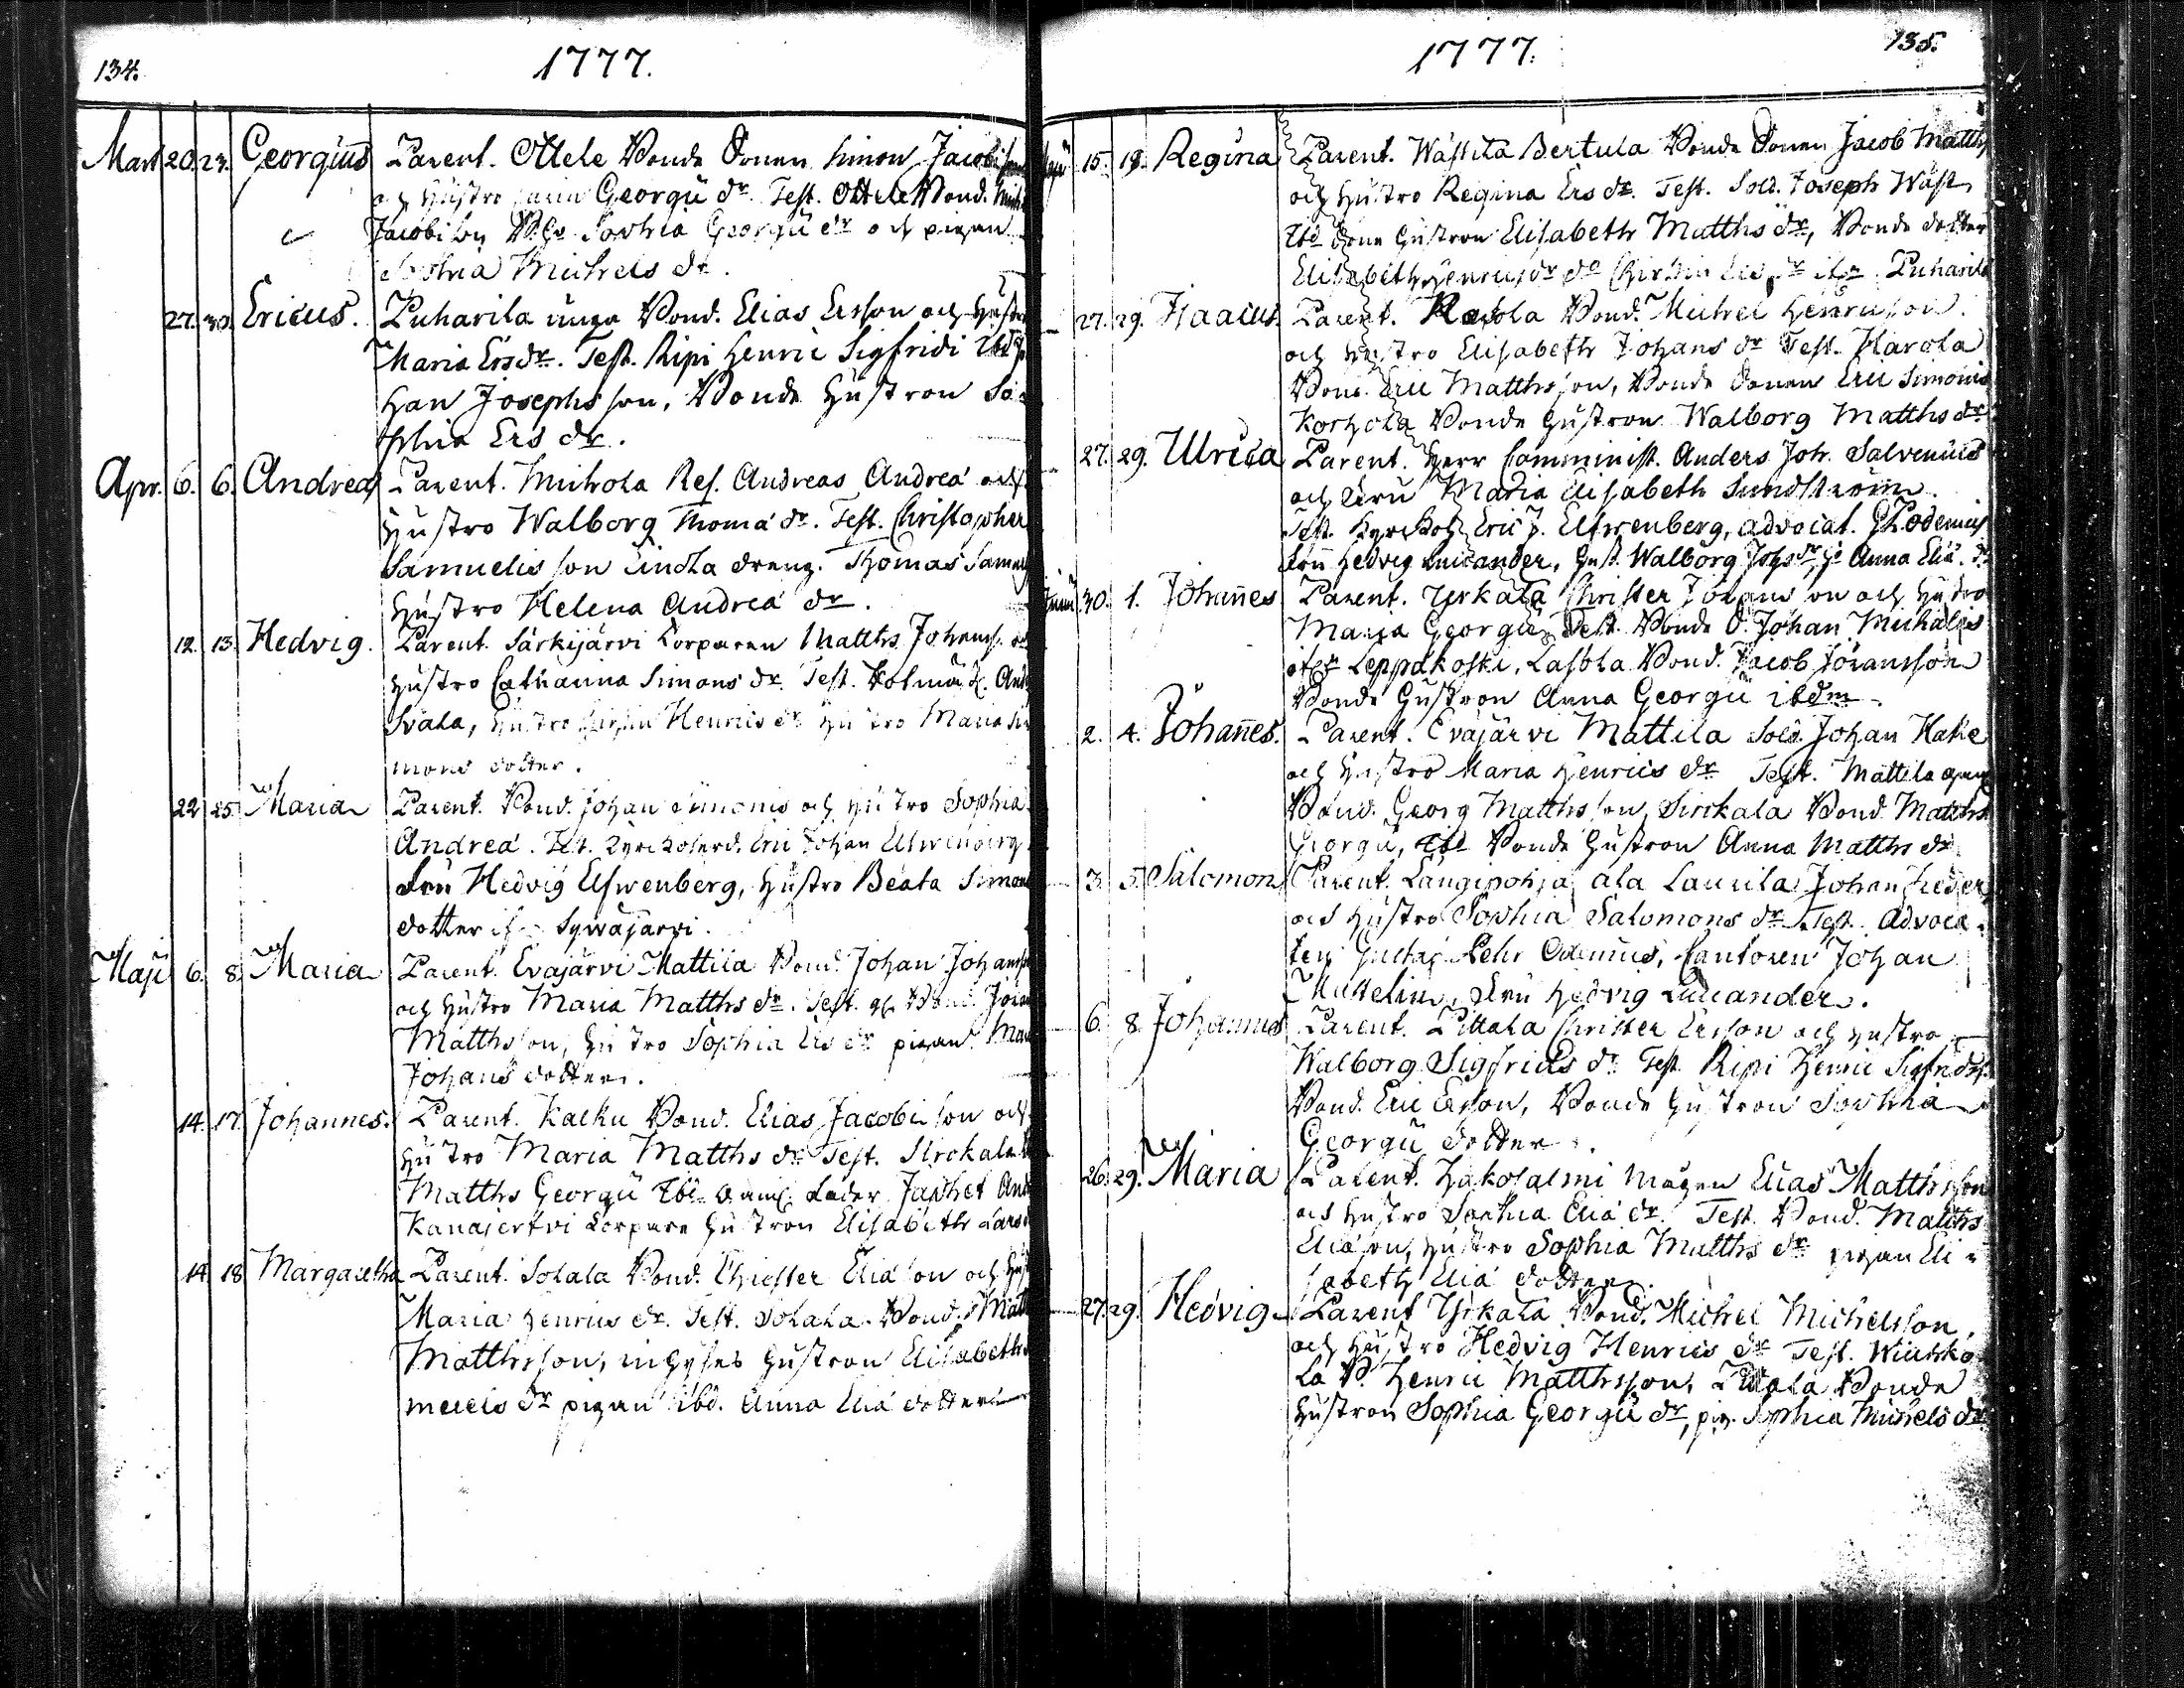 134.
1777.
Mart 20. 23. Georgius Parent. Ottele Bonde Sonen Simon Jacobi son
och Hustro Georgii dr. Test. Ottele Bond. Mich
Jacobi son B.H. Sophia Georgii dr och pigan
Sophia Michels dr.
27. 30. Ericus. Puharila unga Bond. Elias Ersson och Hustro
Maria Ersdr. Test. Ripi Henric Sigfridi Ibd Jo
han Josephsson, Bonde Hustron So=
phia Ers dr.
Apr. 6. 6. Andreas Parent. Michola Ref. Andreas Andreæ och
Hustro Walborg Thomæ dr. Test. Christopher
Samuelis son dreng. Thomas Samuels
Hustro Helena Andreæ dr.
12. 13. Hedvig. Parent. Särkijärvi Torparen Matths Johanss. och
Hustro Catharina Simons dr. Test.
Svala, Hustro Henrics dr Hustro Maria Si
mons dotter.
22 25. Maria Parent. Bond. Johan Simonis och Hustro Sophia
Andreæ. Test. Kyrckoherd. Eric Johan Elfwenberg
Fru Hedvig Elfwenberg, Hustro Beata Simons
dotter if. Sywäjärvi.
Maji 6. 8. Maria Parent. Evajärvi Mattila Bond. Johan Johansson
och Hustro Maria Matths dr. Test. Bond. Johan
Matthsson, Hustro Sophia Ers dr pigan Maria
Johans dotter.
14. 17. Johannes. Parent. Kalku Bond. Elias Jacobi son och
Hustro Maria Matths dr. Test. Sirckala B
Matths Georgii Ibd Japhet And
Kanajerfvi Torpare Hustron Elisabeth Lars
14 18 Margaretha Parent. Solala Bond. Christer Eliæ son och Hust
Maria Henrics dr. Test. Solala Bond. Matt
Matthsson, inhyses Hustron Elisabeth
dr pigan ibd. Anna Eliæ dotter
1777.
135.
Maji 15. 18. Regina Parent. Wästilä Bertula Bonde Sonen Jacob Matths
och Hustro Regina Ers dr. Test. Sold. Joseph Wäst
Ibd Hustron Elisabeth Matths dr, Bonde dotter
Elisabeth Henrics dr do Christin Ers dr Puharila
27. 29. Isaacus. Parent. Bond. Michel Henricson
och Hustro Elisabeth Johans dr Test. Harola
Bond. Eric Matthsson, Bonde Sonen Eric Simonis
Korhola Bonde Hustron Walborg Matths dr
27. 29. Ulrica Parent. Herr Comminist. Anders Joh. Salvenius
och Fru Maria Elisabeth Sundström.
Test. Kyrckoh Eric J. Elfwenberg, advocat. G P Odenius
Fru Hedvig Lucander, Hust. Walborg Johs dr Anna Eliæ. dr
Junii 30. 1. Johannes Parent. Yrkala Christer Johansson och Hustro
Maria Georgii Test. Bonde S. Johan Michalis
Leppäkoski, Lasola Bond. Jacob Johansson
Bonde Hustron Anna Georgii ibdm
2. 4. Johannes. Parent. Evajärvi Mattila Sold. Johan Hake
och Hustro Maria Henrics dr Test. Mattila
Bond. Georg Matthsson, Sirckala Bond. Matths
Georgii, Ibd Bonde Hustron Anna Matths dr
3. 5. Salomon Parent. Längipohja ala Laurila Johan
och Hustro Sophia Salomons dr Test. Advoca
ten Gustaf Pehr Odenius, Cantoren Johan
Mustelin, Fru Hedvig Lucander.
6. 8. Johannes Parent. Pittala Christer Ersson och Hustro
Walborg Sigfrids dr Test. Ripi Henric Sigfrids
Bond. Eric Ersson, Bonde Hustron Sophia
Georgii dotter.
26. 29. Maria Parent. Hakosalmi Mågen Elias Matthsson
och Hustro Sophia Eliæ dr. Test. Bond. Matths
Eliæson, Hustro Sophia Matths dr pigan Eli=
sabeth Eliæ dotter.
27. 29. Hedvig Parent Yrkala Bond. Michel Michelsson,
och Hustro Hedvig Henrics dr Test.
la B. Henric Matthsson, Pittala Bonde
Hustron Sophia Georgii dr, pig. Sophia Michels dr